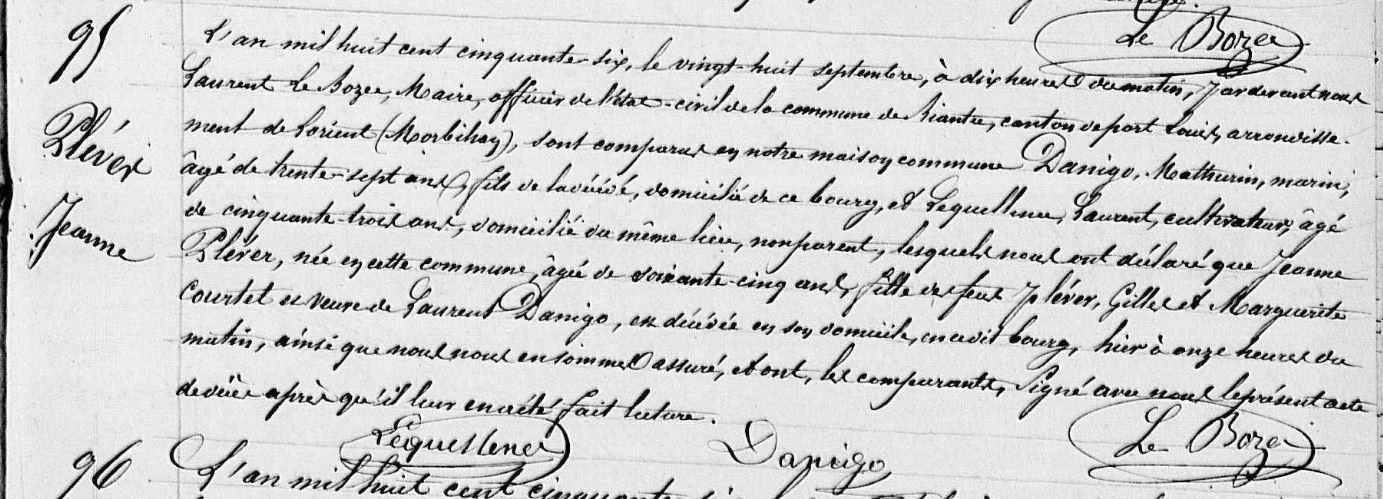 Le Bozec
95
L'an mil huit cent cinquante-six, le vingt-huit septembre, à dix heures du matin, pardevant nous
Laurent Le Bozec, Maire, officier de l'état-civil de la commune de Riantec, canton de port Louis, arrondisse-
ment de Lorient (Morbihan), sont comparus en notre maison commune Danigo, Mathurin, marin,
Pléver
âgé de trente-sept ans, fils de la décédée, domicilié de ce bourg, et Lequellenec, Laurent, cultivateur, âgé
Jeanne
de cinquante-trois ans, domicilié du même lieu, non parent, lesquels nous ont déclaré que Jeanne
Pléver, née en cette commune, âgée de soixante-cinq ans, fille des feus Pléver, Gilles et Marguerite
Courtet et veuve de Laurent Danigo, est décédée en son domicile, en cedit bourg, hier à onze heures du
matin, ainsi que nous nous en sommes assuré, et ont, les comparants, signé avec nous le présent acte
de décès après qu'il leur en a été fait lecture.
Lequellenec Danigo Le Bozec
96
L'an mil huit cent cinquante